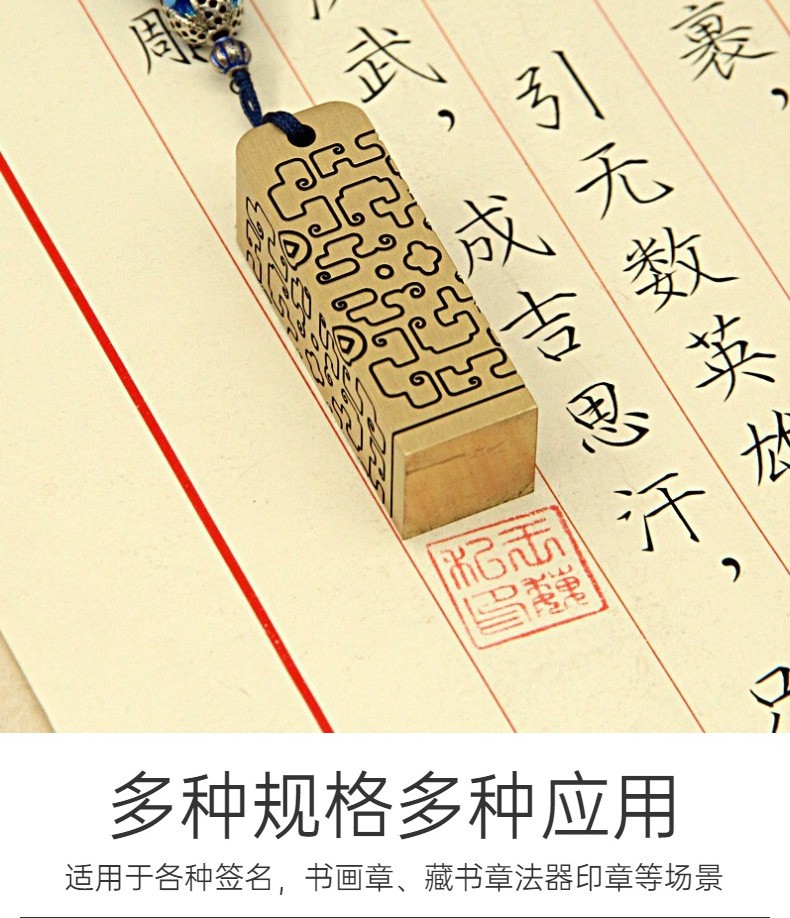 裹，
引无数英雄
武，成吉思汗，只
多种规格多种应用
适用于各种签名，书画章、藏书章法器印章等场景